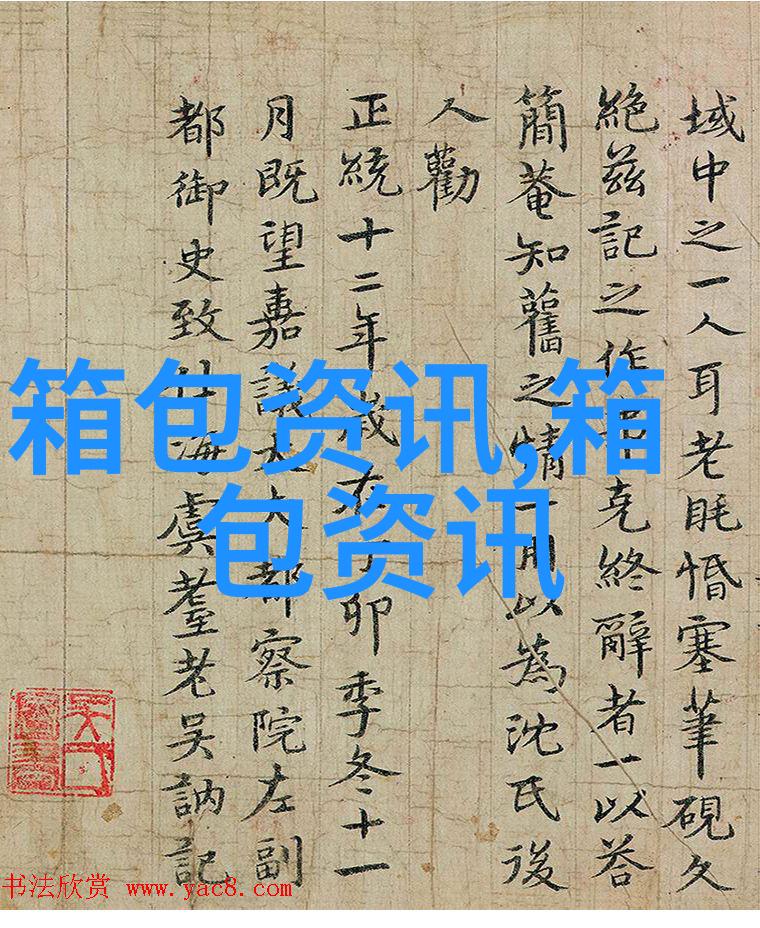 域中之一人耳老眊惛塞筆硯久
絶兹記之作克終辭者一以荅
簡菴知舊之情一用以為沈氏後
人勸
正統十二年歲在丁卯季冬十一
月既望嘉議大夫都察院左副
都御史致仕海虞耋老吳訥記
箱包资讯,箱
包资讯
书法欣赏 www.yac8.com